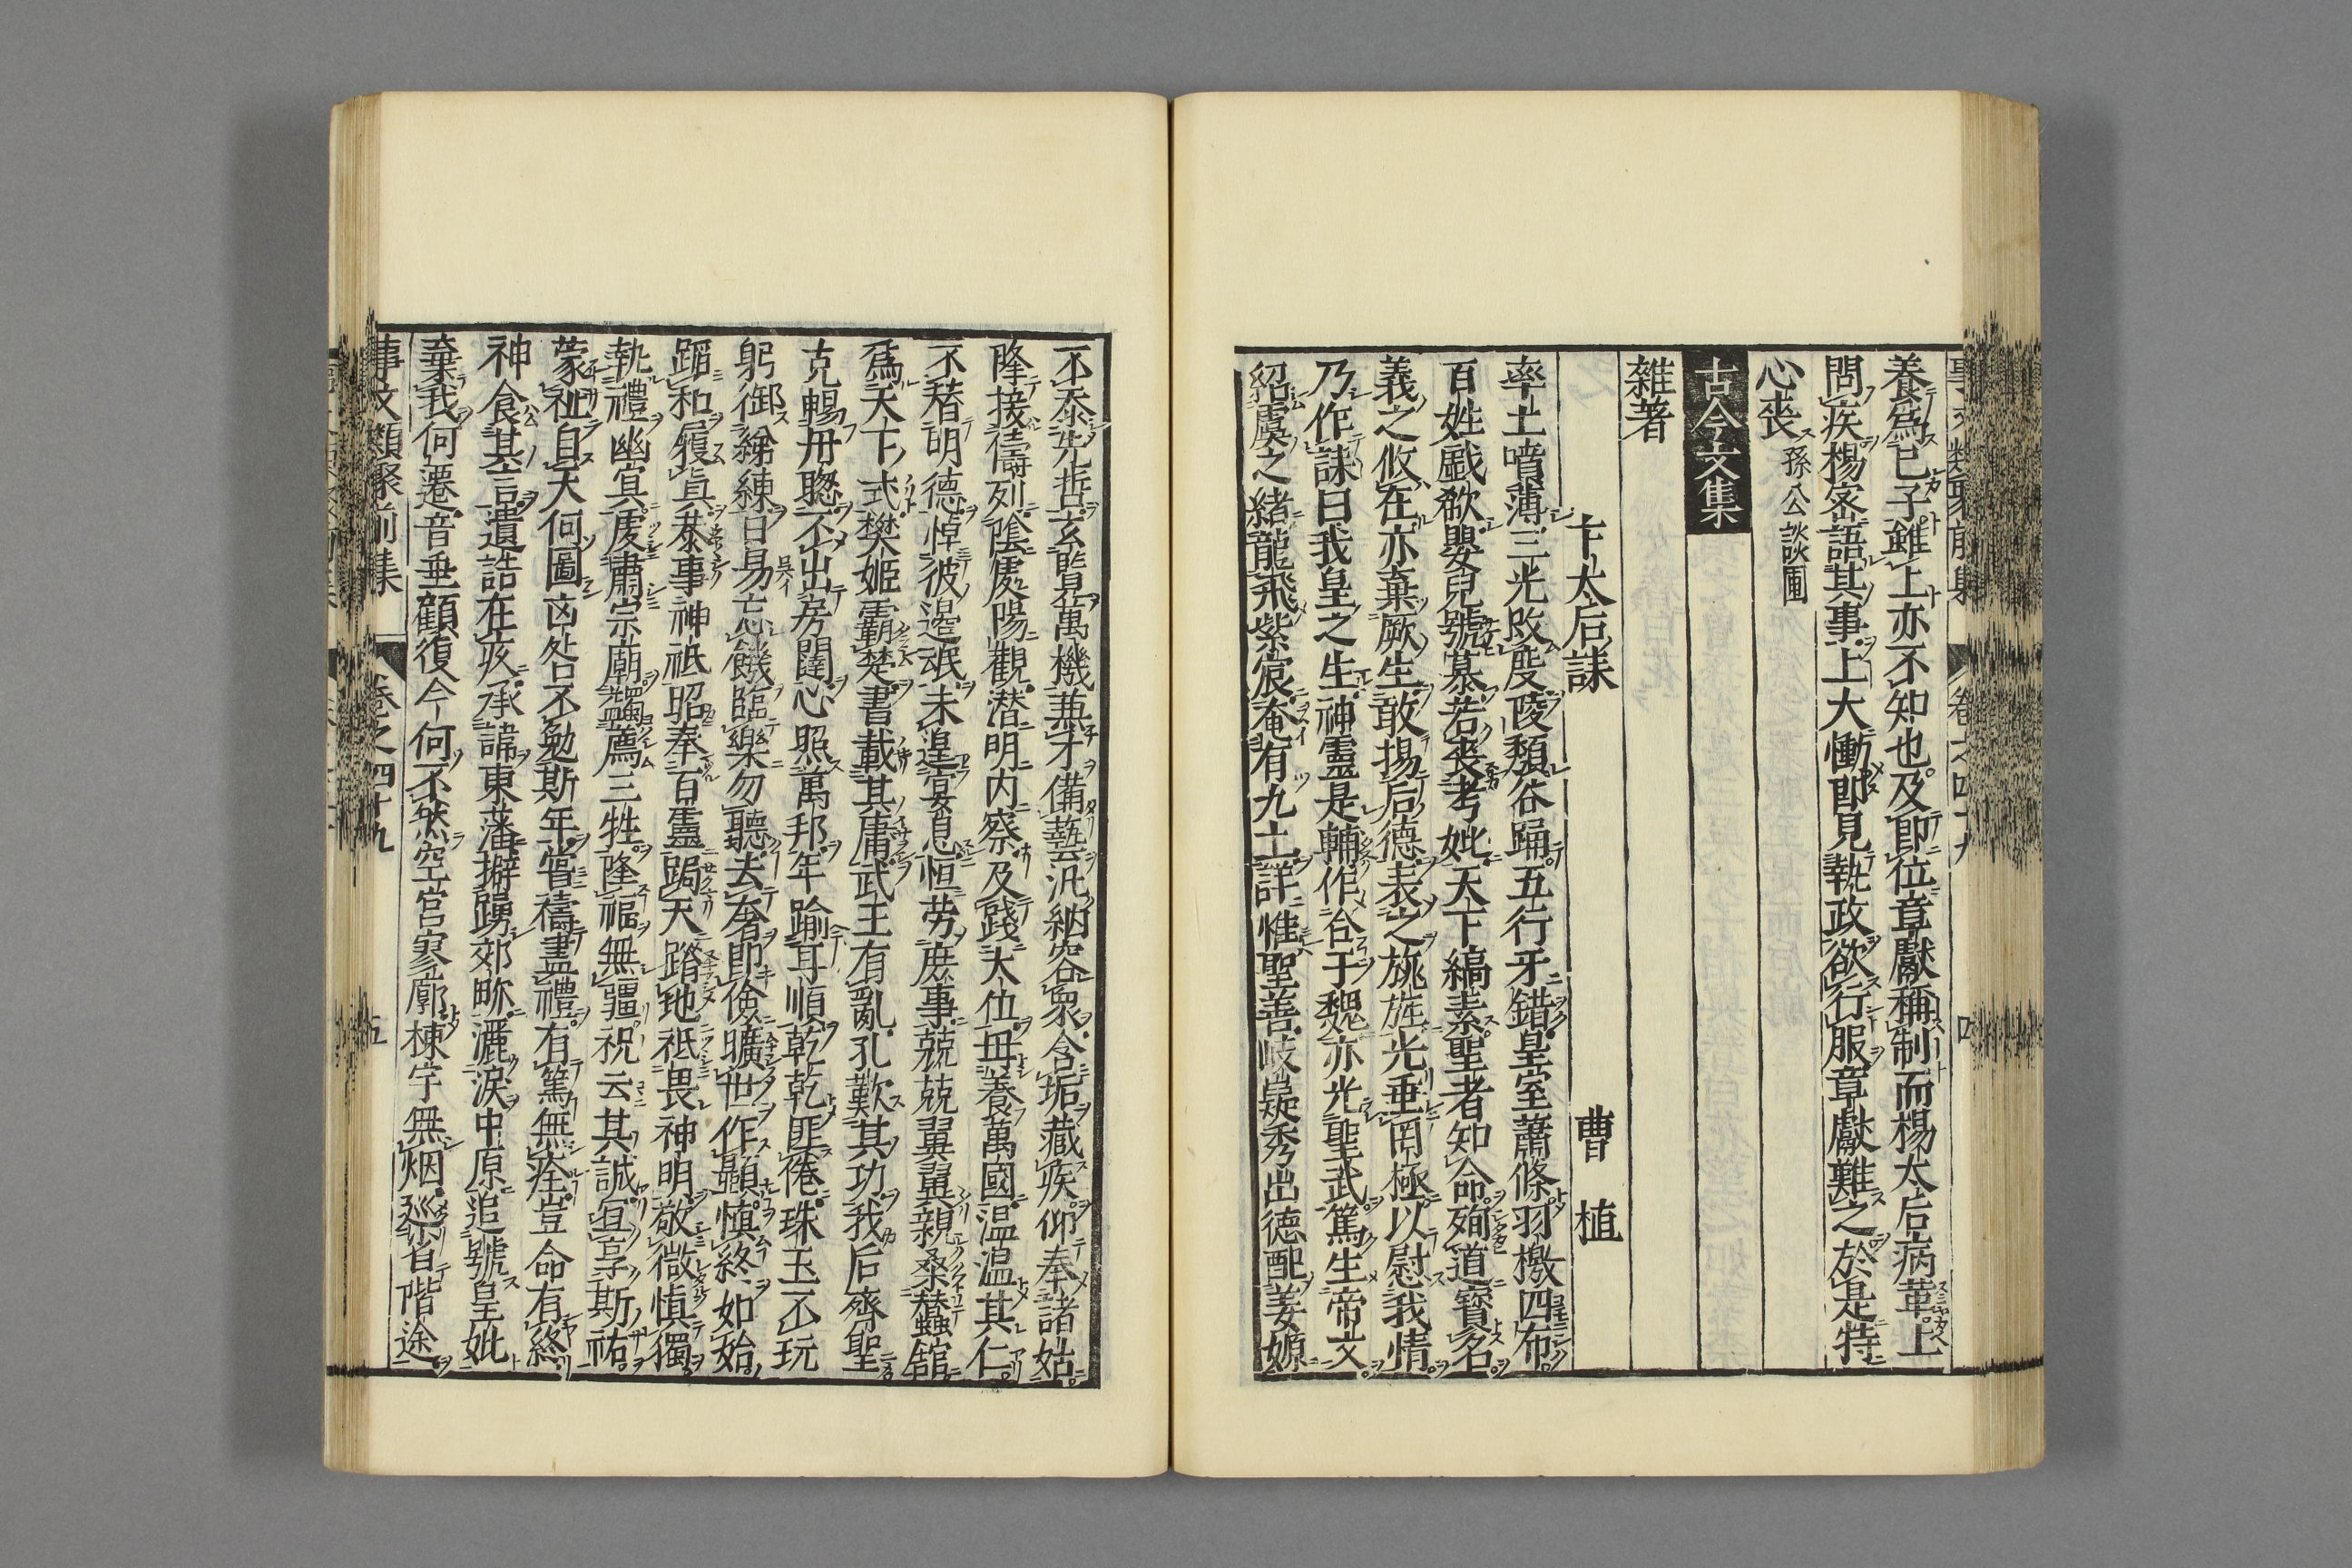 養爲己子雖上亦不知也及即位章獻稱制而楊太后病革上
問疾楊宻語其事上大慟即見執政欲行服章獻難之於是特
心丧 孫公談圃
古今文集
雜著
卞太后誄 曹植
率土噴薄三光改度陵頽谷踊五行牙錯皇室蕭條羽檄四布
百姓戲欷嬰兒號慕若丧考妣天下縞素聖者知命殉道寳名
義之攸在亦棄厥生敢揚后德表之旐旌光垂罔極以慰我情
乃作誄曰我皇之生神靈是輔作合于魏亦光聖武篤生帝文
紹虞之緒龍飛紫宸奄有九土詳惟聖善岐嶷秀出徳配姜嫄
不忝先哲玄覧萬機兼才備藝汎納容衆含垢藏疾仰奉諸姑
降接儔列陰處陽觀潜明内察及踐大位毋養萬國温温其仁
不替明德悼彼邉氓未遑宴息恒劳庶事兢兢翼翼親桑蠶舘
爲天下式樊姫霸楚書載其庸武王有亂孔歎其功我后齊聖
克暢丹聦不出房闥心照萬邦年踰耳順乾乾匪倦珠玉不玩
躬御綈練日易忘饑臨樂勿聽去奢即儉曠世作顯慎終如始
蹈和履眞恭事神祇昭奉百靈跼天蹐地祗畏神明敬微慎獨
執禮幽冥䖍肅宗廟蠲薦三牲降福無疆祝云其誠宜享斯祐
蒙祉自天何圖凶咎不勉斯年甞禱盡禮有篤無痊豈命有終
神食其言遺誥在疚承諱東藩擗踴郊畛灑涙中原追號皇妣
棄我何遷音垂顧復今何不然空宮寥廓棟宇無烟廵省階途
事文類聚前集 卷之四十九 五